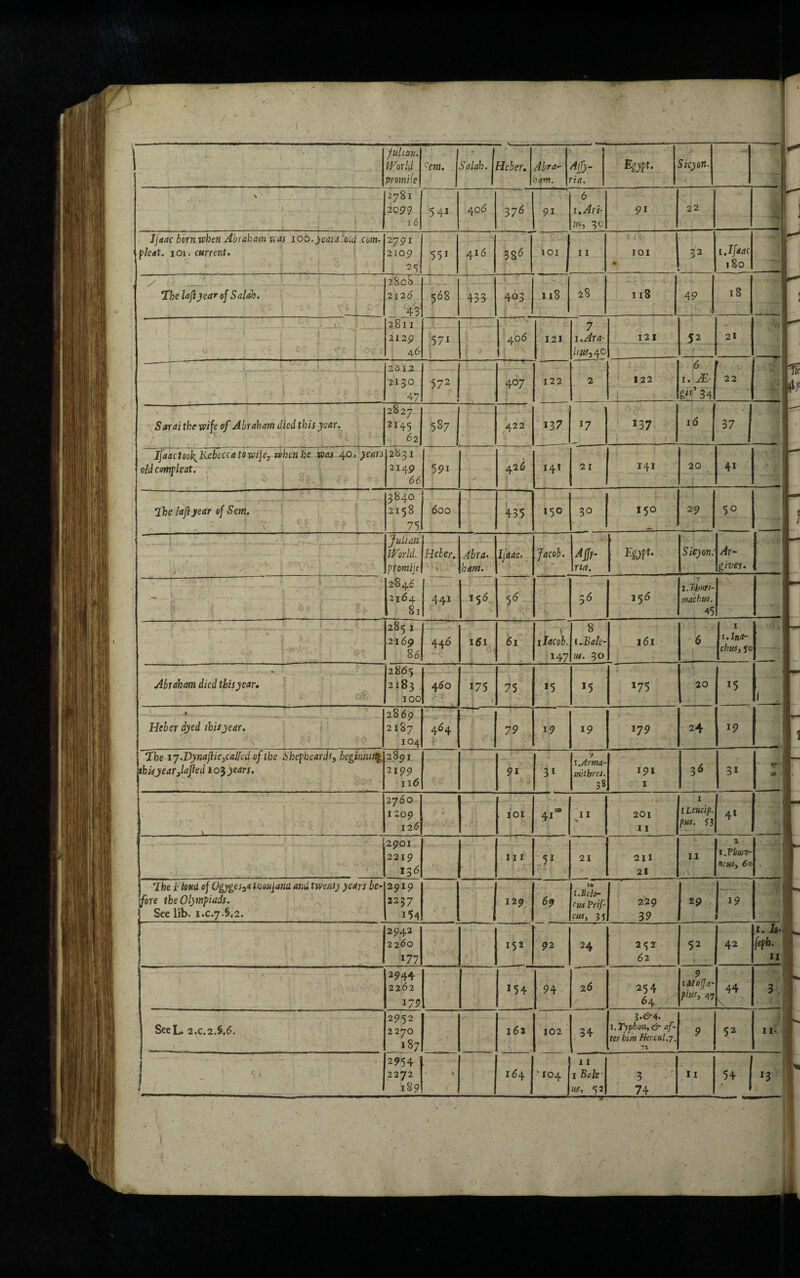 Julian. World promise | Sem. | Salah. | Heber. | Abraham. | Assyria. | Egypt. | Sicyon.
2781 2099 16 | 541 | 406 | 376 | 91 | 6 1.Arius, 30 | 91 | 22
Isaac born when Abraham was 100. years old compleat. 101. current. | 2791 2109 25 | 551 | 416 | 386 | 101 | 11 | 101 | 32 | 1.Isaac 180
The last year of Salah. | 2808 2126 43 | 568 | 433 | 403 | 118 | 28 | 118 | 49 | 18
2811 2129 46 | 571 | 406 | 121 | 7 1.Aralius, 40 | 121 | 52 | 21
2812 2130 47 | 572 | 407 | 122 | 2 | 122 | 6 1. Æ- gir' 34 | 22
Sarai the wife of Abraham died this year. | 2827 2145 62 | 587 | 422 | 137 | 17 | 137 | 16 | 37
Isaac took Rebecca to wife, when he was 40. years old compleat. | 2831 2149 66 | 591 | 426 | 141 | 21 | 141 | 20 | 41
The last year of Sem. | 3840 2158 75 | 600 | 435 | 150 | 30 | 150 | 29 | 50
Julian World. promise | Heber. | Abraham. | Isaac. | Jacob. | Assyria. | Egypt. | Sicyon. | Argives.
2846 2164 81 | 441 | 156 | 56 | 36 | 156 | 7 1.Thurimachus. 45
2851 2169 86 | 446 | 161 | 61 | 1 Jacob. 147 | 8 1.Baleus. 30 | 161 | 6 | 1 1.Inachus, 50
Abraham died this year. | 2865 2183 100 | 460 | 175 | 75 | 15 | 15 | 175 | 20 | 15
Heber dyed this year. | 2869 2187 104 | 464 | 79 | 19 | 19 | 179 | 24 | 19
The 17.Dynastie, called of the Shepheards, beginning this year, lasted 103 years. | 2891 2199 116 | 91 | 31 | 9 1.Armamithres. 38 | 191 1 | 36 | 31
2760 1209 126 | 101 | 41 | 11 | 201 11 | 1 1 Leucippus. 53 | 41
2901 2219 136 | 111 | 51 | 21 | 211 21 | 11 | 2 1.Phoroneus, 60
The Floud of Ogyges, a thousand and twenty years before the Olympiads. See lib. 1.c.7.§.2. | 2919 2237 154 | 129 | 69 | 10 1.Belocus Priscus, 35 | 229 39 | 29 | 19
2942 2260 177 | 152 | 92 | 24 | 252 62 | 52 | 42 | 1. Joseph. 11
2944 2262 179 | 154 | 94 | 26 | 254 64 | 9 1 Messapius, 47 | 44 | 3
See L. 2.c.2.§.6. | 2952 2270 187 | 162 | 102 | 34 | 3.&4. 1. Typhon, & after him Hercul.7. 72 | 9 | 52 | 11
2954 2272 189 | 164 | 104 | 11 1 Baleus, 52 | 3 74 | 11 | 54 | 13